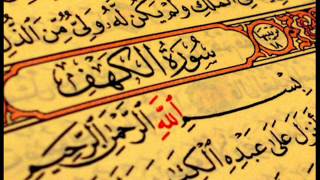 الْمُلْكِ وَلَمْ يَكُن لَّهُ وَلِيٌّ مِّنَ الذُّلِّ
سُورَةُ الكَهْفِ
بِسْمِ اللَّهِ الرَّحْمَٰنِ الرَّحِيمِ
أَنزَلَ عَلَىٰ عَبْدِهِ الْكِتَٰ